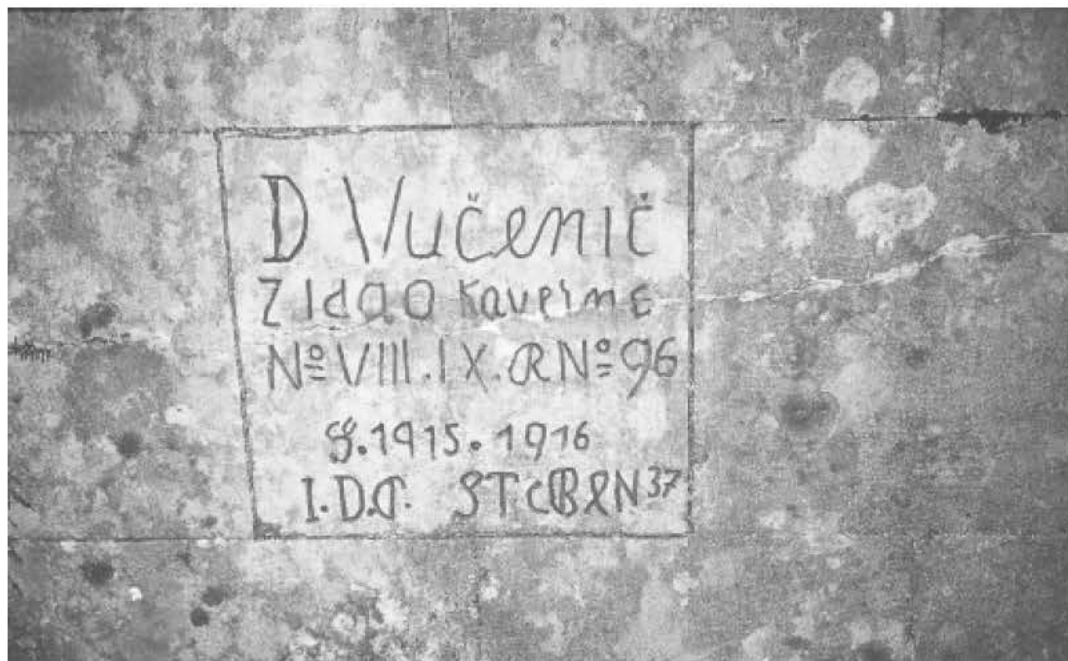 D Vučenič
Zidao Kaverne
Nº VIII. IX. R Nº 96
g. 1915. 1916
I. D. C. STCBRN 37